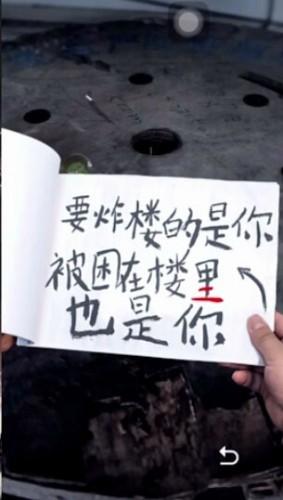 要炸楼的是你
被困在楼里
也是你